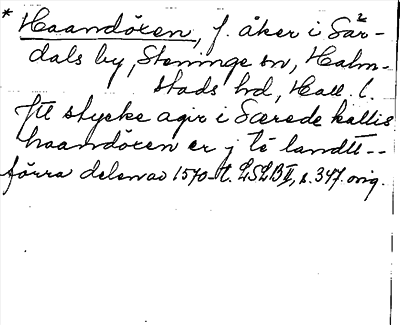 * Haandören, f. åker i Sår-
dals by, Steninge sn, Halm-
stads hd, Hall. l.
Itt stycke agir i Særede kallis
haandören er j te landtt--
förra delen av 1570-t. LSLB II, s. 347. orig.